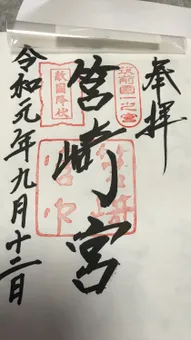 奉拝
筑前國一之宮
筥崎宮
敵國降伏
筥崎宮印
令和元年九月十二日